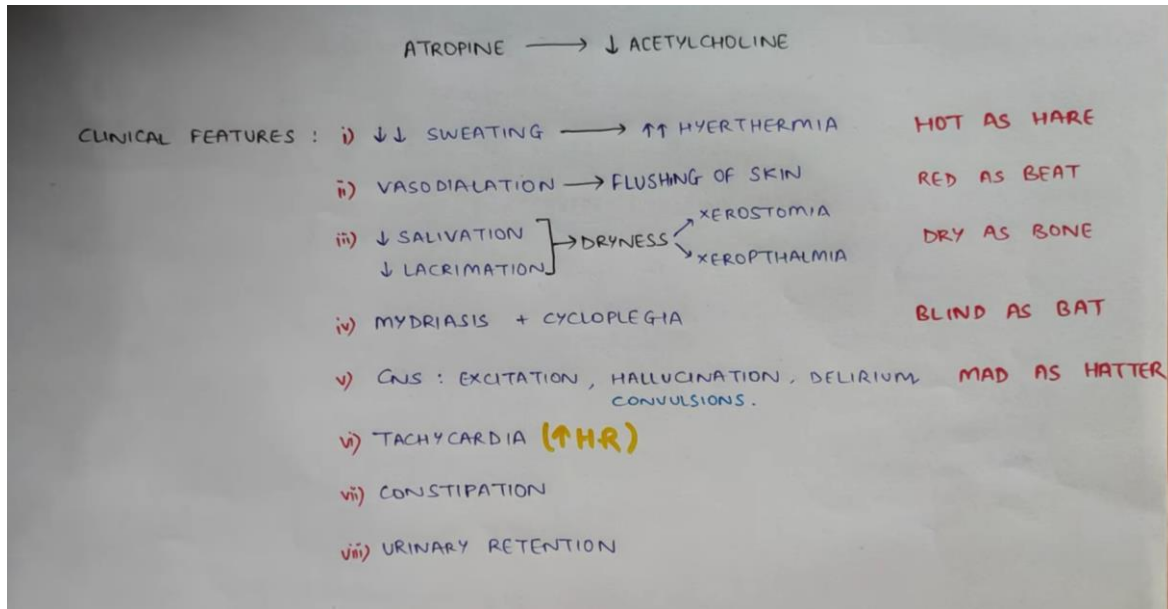 ATROPINE → ↓ ACETYLCHOLINE
CLINICAL FEATURES : i) ↓↓ SWEATING → ↑↑ HYERTHERMIA HOT AS HARE
ii) VASODIALATION → FLUSHING OF SKIN RED AS BEAT
iii) ↓ SALIVATION ↓ LACRIMATION ] → DRYNESS DRY AS BONE
XEROSTOMIA
XEROPTHALMIA
iv) MYDRIASIS + CYCLOPLEGIA BLIND AS BAT
v) CNS : EXCITATION, HALLUCINATION, DELIRIUM MAD AS HATTER
CONVULSIONS.
vi) TACHYCARDIA (↑HR)
vii) CONSTIPATION
viii) URINARY RETENTION